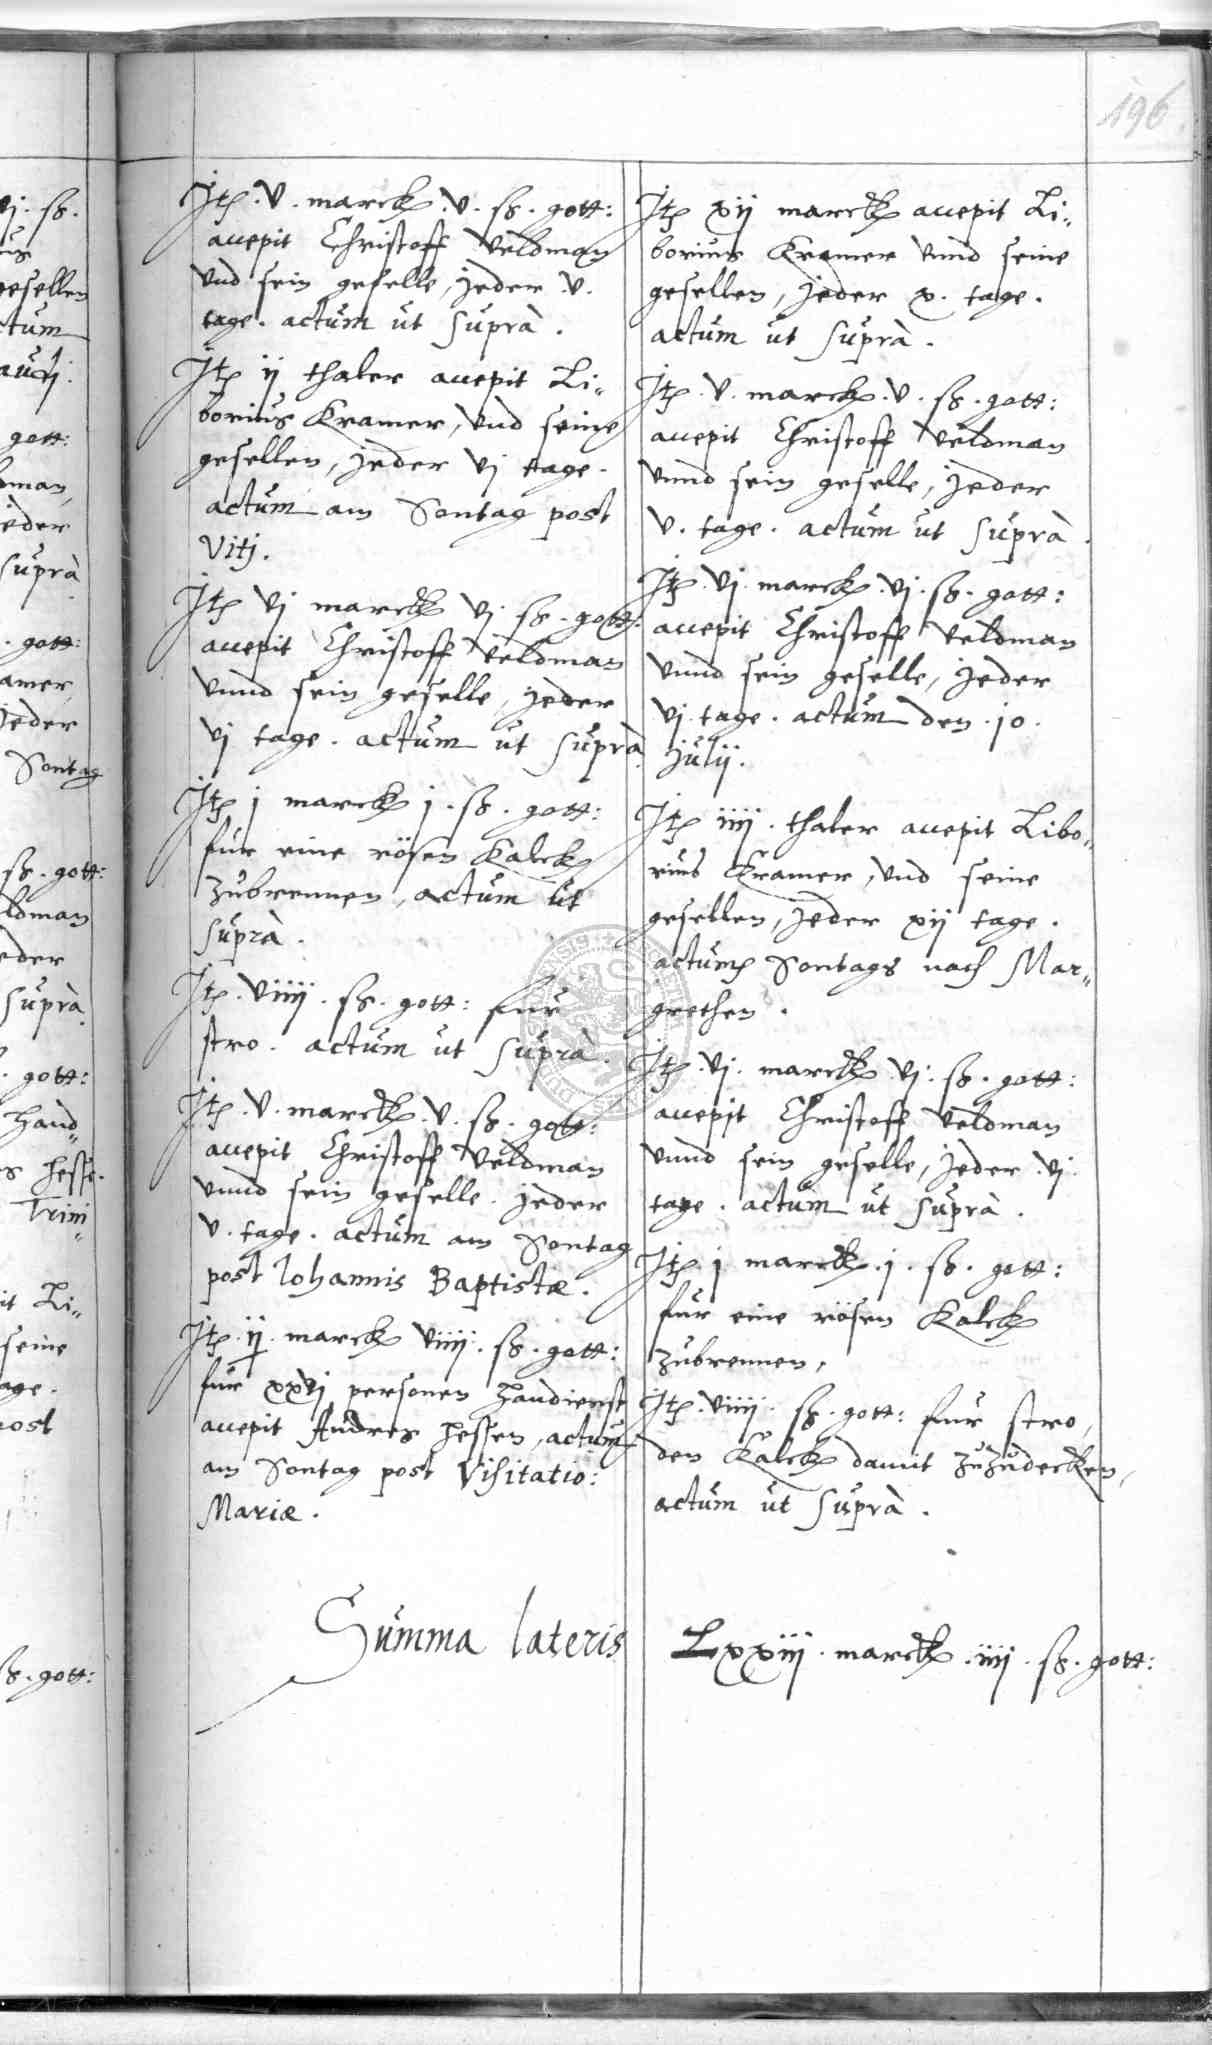 196
Jtem .v. marck .v. ß. gott:
accepit Christoff Veldman
vnd sein geselle, jeder v.
tage. actum ut suprà.
Jtem ij thaler accepit Li„
borius Kramer, vnd seine
gesellen, jeder vj tage.
actum am Sontag post
Vitj.
Jtem vj marck vj ß. gott:
accepit Christoff Veldman
vnnd sein geselle, jeder
vj tage. actum ut suprà
Jtem j marck j. ß. gott:
fur eine rösen Kalck
zubrennen, actum ut
suprà.
Jtem .viiij. ß. gott: fur
stro. actum ut suprà.
Jtem .v. marck .v. ß. gott:
accepit Christoff Veldman
vnnd sein geselle. jeder
v. tage. actum am Sontag
post Iohannis Baptistæ.
Jtem .ij. marck viiij. ß. gott:
fur xxvj personen Handienst
accepit Andres Hessen, actum
am Sontag post Visitatio:
Mariæ.
Summa lateris
Jtem xij marck accepit Li„
borius Kramer vnnd seine
gesellen, jeder x. tage.
actum ut suprà.
Jtem .v. marck .v. ß. gott:
accepit Christoff Veldman
vnnd sein geselle, jeder
v. tage. actum ut suprà.
Jtem .vj. marck .vj. ß. gott:
accepit Christoff Veldman
vnnd sein geselle, jeder
vj. tage. actum den .10.
Julij.
Jtem iiij. thaler accepit Libo„
rius Kramer, vnd seine
gesellen, jeder xij tage.
actum Sontags nach Mar„
grethen.
Jtem .vj. marck .vj. ß. gott:
accepit Christoff Veldman
vnnd sein geselle, jeder .vj.
tage. actum ut suprà.
Jtem .j marck .j. ß. gott:
fur eine rösen Kalck
zubrennen,
Jtem .viiij. ß. gott: fur stro,
den Kalck damit zuzudecken,
actum ut suprà.
Lxxiij. marck .iiij. ß. gott: